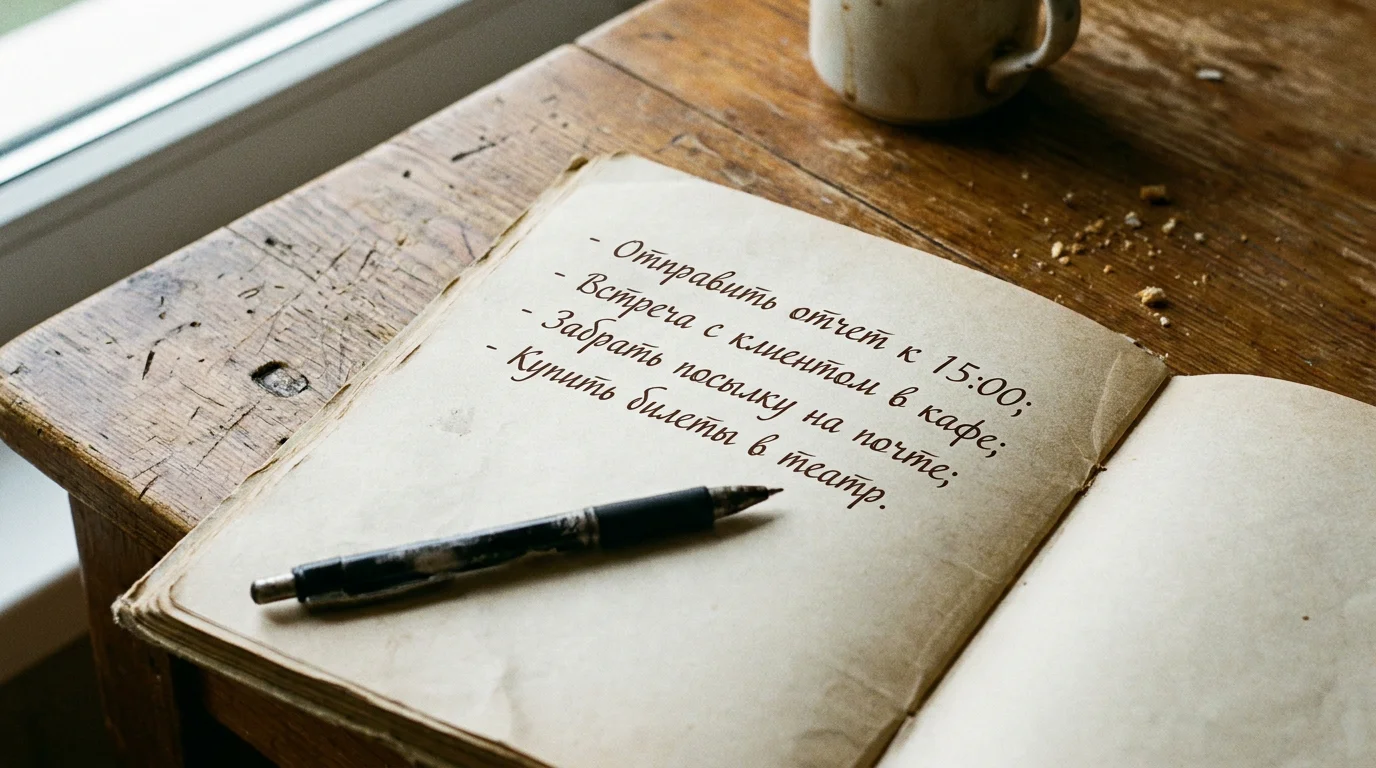 - Отправить отчет к 15:00;
- Встреча с клиентом в кафе;
- Забрать посылку на почте;
- Купить билеты в театр.